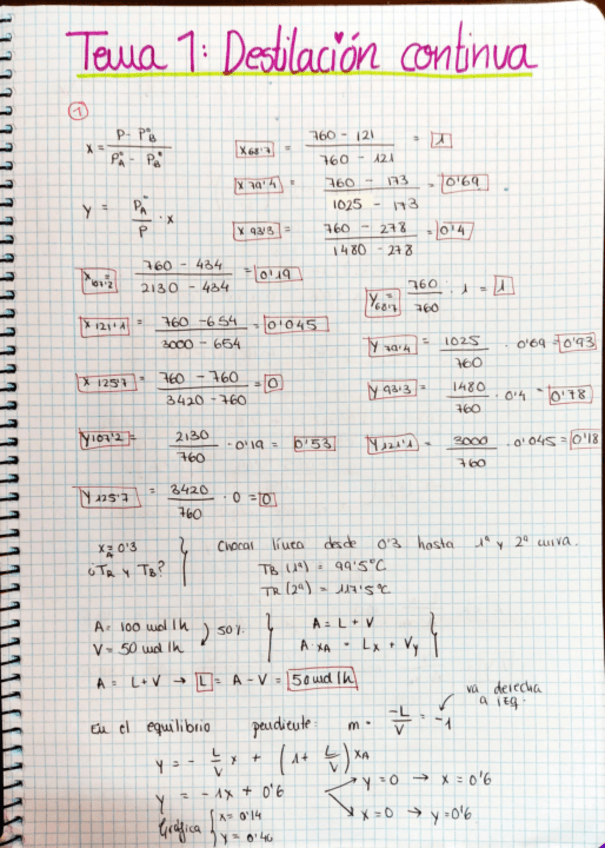 Tema 1: Destilación continua
1
x = P - P°B / P°A - P°B
x 68'7 = 760 - 121 / 760 - 121 = 1
x 79'4 = 760 - 173 / 1025 - 173 = 0'69
y = P°A / P · x
x 93'3 = 760 - 278 / 1480 - 278 = 0'4
x 107'2 = 760 - 434 / 2130 - 434 = 0'19
y 68'7 = 760 / 760 · 1 = 1
x 121'1 = 760 - 654 / 3000 - 654 = 0'045
y 79'4 = 1025 / 760 · 0'69 = 0'93
x 125'7 = 760 - 760 / 3420 - 760 = 0
y 93'3 = 1480 / 760 · 0'4 = 0'78
y 107'2 = 2130 / 760 · 0'19 = 0'53
y 121'1 = 3000 / 760 · 0'045 = 0'18
y 125'7 = 3420 / 760 · 0 = 0
xA = 0'3
¿TR y TB?
línea desde 0'3 hasta 1ª y 2ª curva.
TB (1ª) = 99'5°C
TR (2ª) = 117'5°C
A = 100 mol/h
V = 50 mol/h
50%
A = L + V
A·xA = Lx + Vy
A = L+V → L = A - V = 50 mol/h
En el equilibrio pendiente: m = -L / V = -1
va derecha
a izq.
y = - L/V x + (1 + L/V) xA
y = -1x + 0'6
y = 0 → x = 0'6
x = 0 → y = 0'6
Gráfica
x = 0'14
y = 0'46